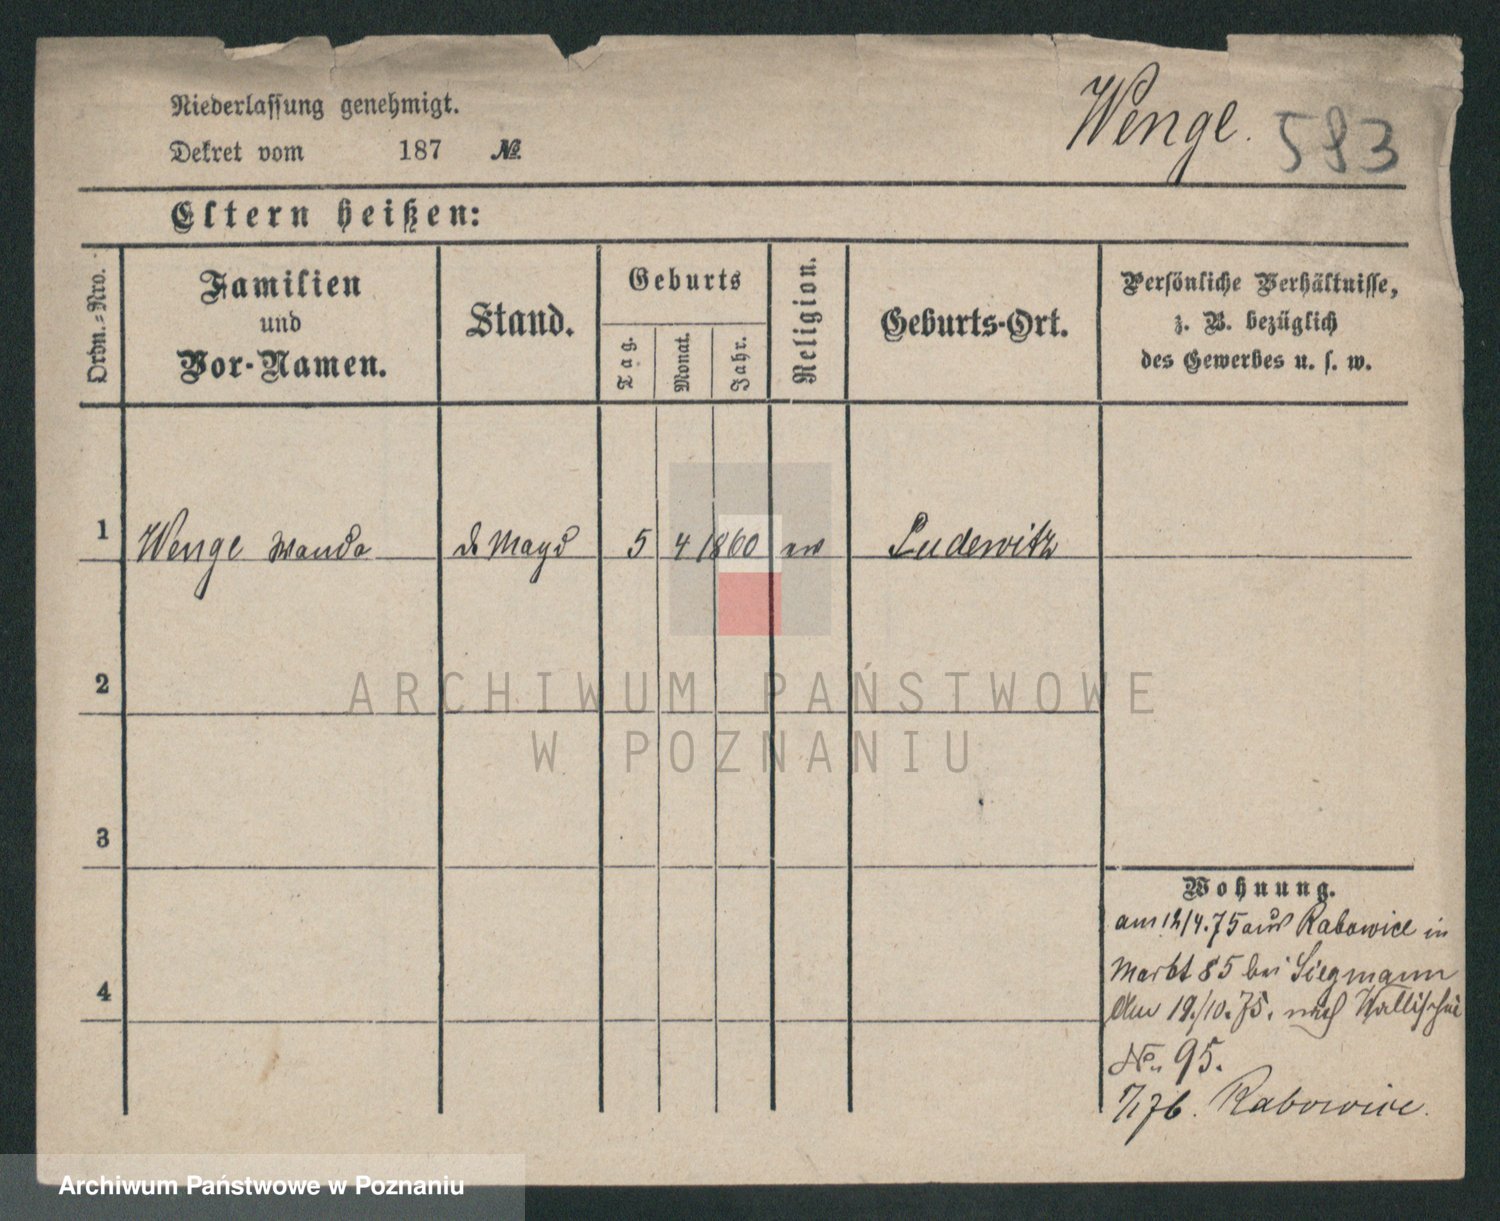 Niederlassung genehmigt.
Wenge. 593
Dekret vom 187 №
Eltern heißen:
Ordn.-Nro.
Familien und Vor-Namen.
Stand.
Geburts
Tag.
Monat.
Jahr.
Religion.
Geburts-Ort.
Persönliche Verhältnisse,
z. B. bezüglich
des Gewerbes u. s. w.
1 Wenge Wanda d. Magd 5 4 1860 ev Pudewitz
2
3
4
Wohnung.
am 12/4.75 aus Rabowice in
Markt 85 bei Siegmann
Am 19./10.75. nach Wallischei
No. 95.
7/1 76. Rabowice.
ARCHIWUM PAŃSTWOWE
W POZNANIU
Archiwum Państwowe w Poznaniu